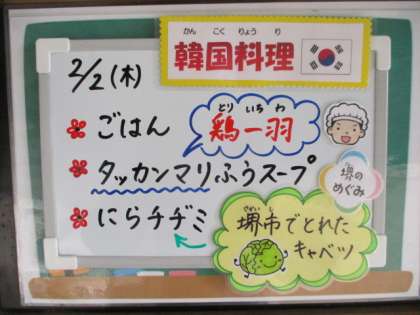 かん こく りょう り
韓国料理
2/2(木)
ごはん
とり いち わ
鶏一羽
タッカンマリふうスープ
堺の
めぐみ
にらチヂミ
堺市でとれた
キャベツ